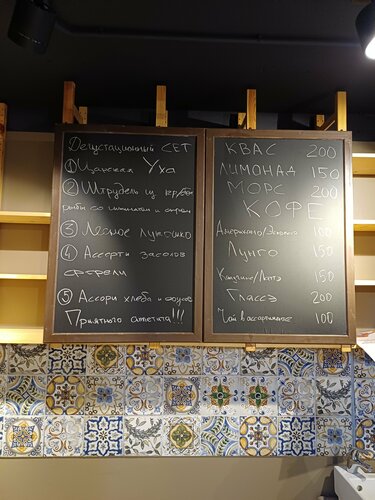 Дегустационный СЕТ
① Щанская Уха
② Штрудель из красной
рыбы со шпинатом и сыром
③ Лесное лукошко
④ Ассорти засолов
форели
⑤ Ассорти хлеба и соусов
Приятного аппетита!!!
КВАС 200
ЛИМОНАД 150
МОРС 200
КОФЕ
Американо/Эспрессо 100
Лунго 150
Капучино/Латэ 150
Глассэ 200
Чай в ассортименте 100